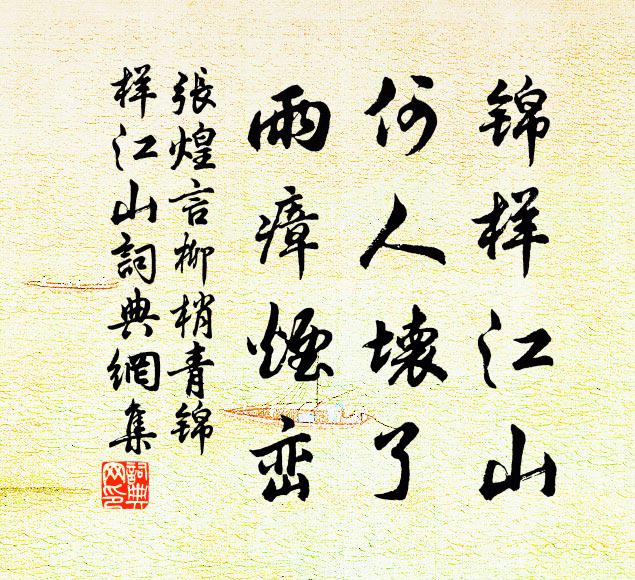 锦样江山
何人壊了
雨瘴煙峦
張煌言柳梢青錦
样江山詞典網集
詞典网印